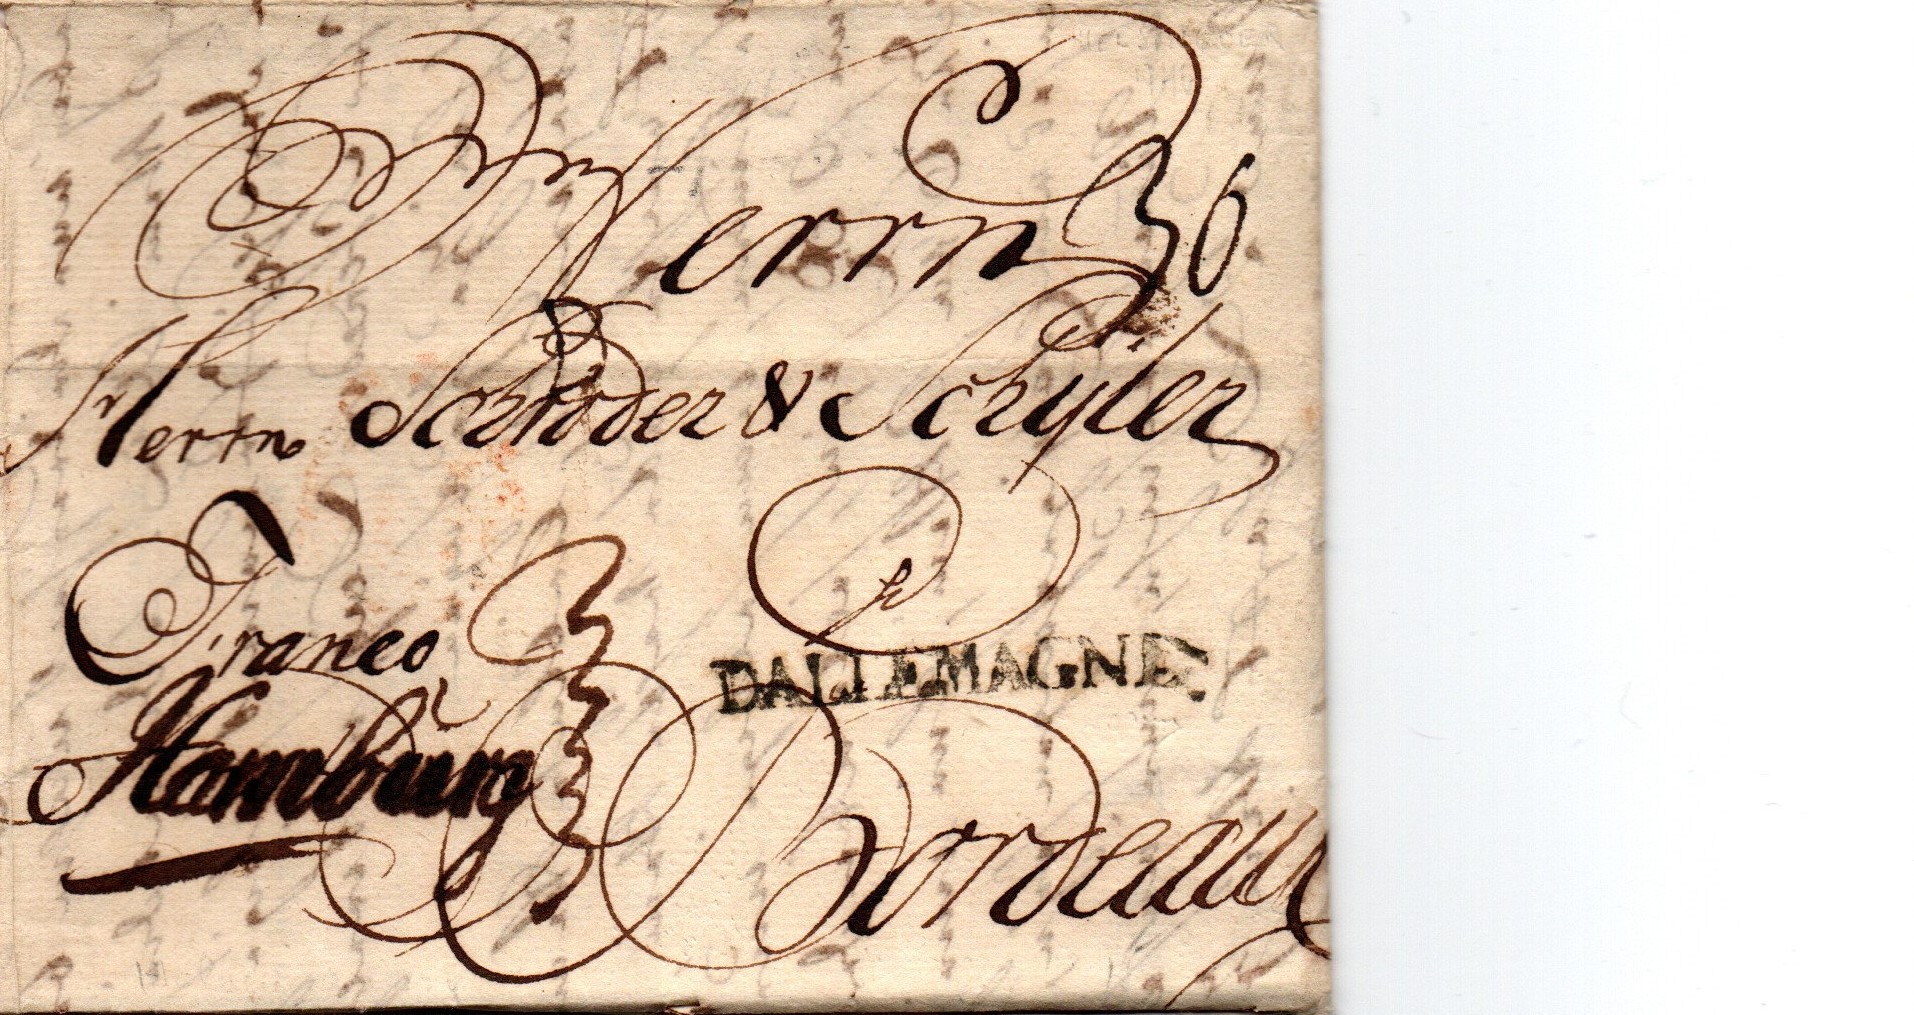 Herrn
36
Herrn Schröder & Schÿler
Franco
Hambŭrg
DALLEMAGNE
Bordeaux